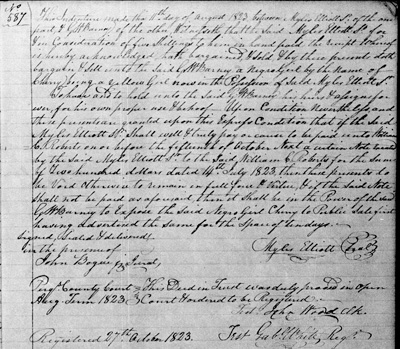 No
587
This Indenture made the 11th day of August 1823 between Myles Elliott Sr. of the one
part & G W Barney of the other Witnesseth that the Said Myles Elliott Sr. for
& in Consideration of five Shillings to him in hand paid the receipt whereof
is hereby acknowledged hath bargained & Sold & by these present doth
bargain & Sell unto the Said G W Barney a Negro Girl by the name of
Chany being a yellow Girl now in the possession of Said Myles Elliott Sr.
To have and to hold unto the Said G W Barney his heirs & assigns for
ever, for his own proper use & behoof - Upon Condition Nevertheless and
these presents are granted upon this Express Condition that if the Said
Myles Elliott Sr. Shall well & truly pay or cause to be paid unto William
C. Roberts on or before the fifteenth of October Next a certain Note
by the Said Myles Elliott Sr. to the Said William C Roberts for the Sum
of Two hundred dollars dated 14th July 1823, then these presents to
be Void otherwise to remain in full force & Virtue, & if the Said Note
Shall not be paid as aforesaid, then it Shall be in the Power of the Said
G W Barney to Expose the Said Negro Girl Chany to Public Sale first
having advertised the Same for the Space of ten days.
Signed, Sealed & delivered
in the presence of
Myles Elliott Seal
John Bogue Jurat
Perqs. County Court This Deed in Trust was duly proved in Open
Aug. Term 1823 Court & ordered to be Registered
Test John Wood Clk.
Registered 27th October 1823. Test White Regr.